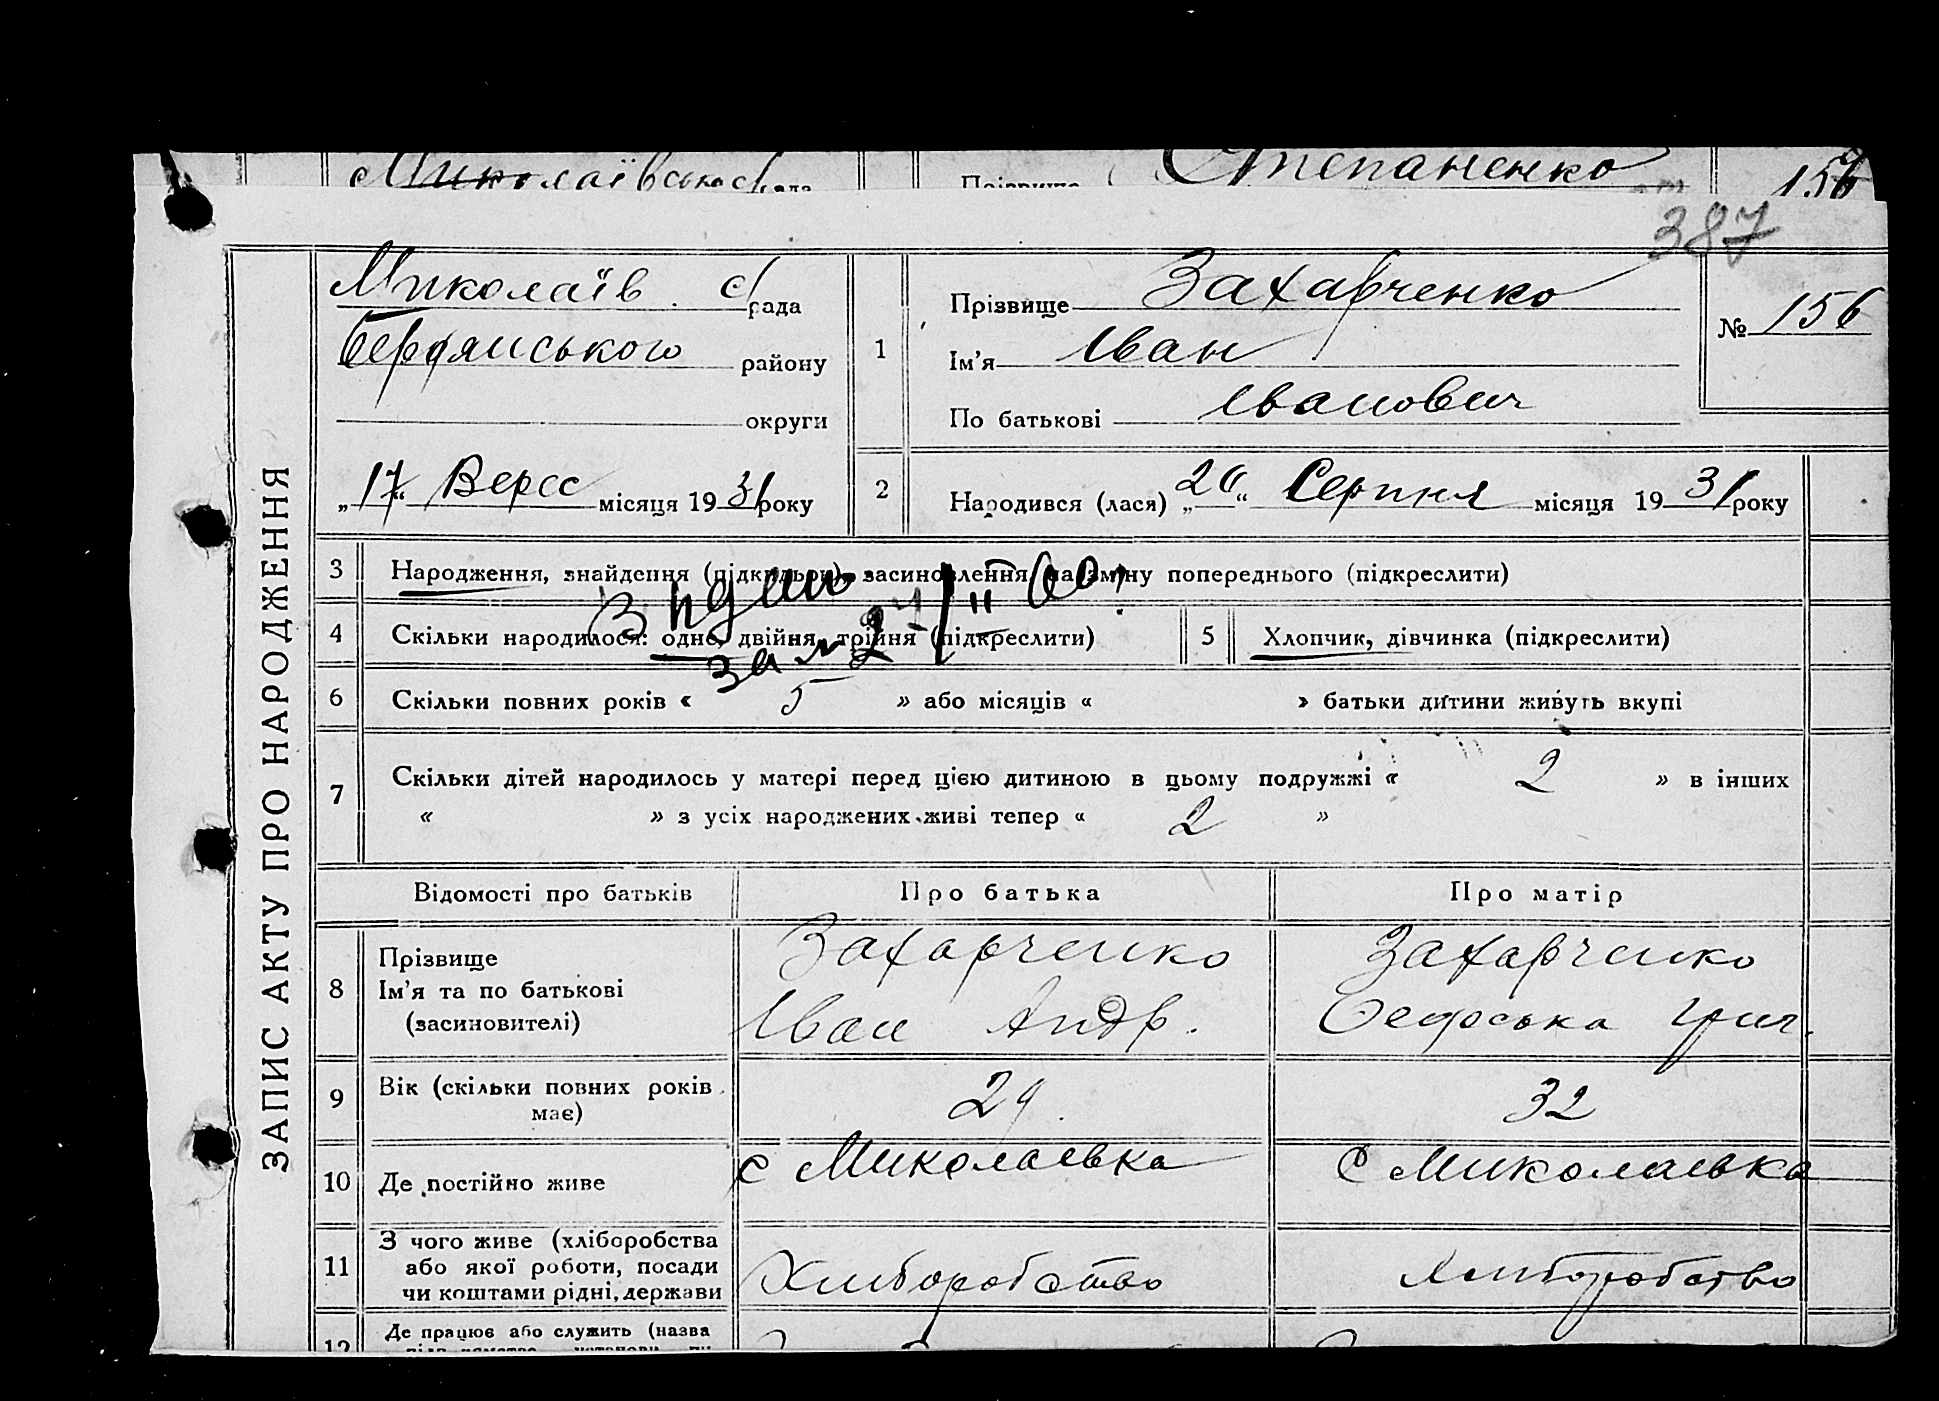 Миколаївська срада Прізвище Степаненко 156
387
ЗАПИС АКТУ ПРО НАРОДЖЕННЯ
Миколаїв. с/рада
Бердянського району
округи
„17“ Верес місяця 1931 року
1 Прізвище Захарченко
Ім'я Іван
По батькові Іванович
№ 156
2 Народився (лася) „26“ Серпня місяця 1931 року
3 Народження, знайдення (підкидьки), засиновлення, на зміну попереднього (підкреслити)
4 Скільки народилося: одне, двійня, трійня (підкреслити) 5 Хлопчик, дівчинка (підкреслити)
за №
6 Скільки повних років « 5 » або місяців « » батьки дитини живуть вкупі
7 Скільки дітей народилось у матері перед цією дитиною в цьому подружжі « 2 » в інших
« » з усіх народжених живі тепер « 2 »
Відомості про батьків Про батька Про матір
8 Прізвище Захарченко Захарченко
Ім'я та по батькові Іван Андр. Федоська Григ.
(засиновителі)
9 Вік (скільки повних років має) 29. 32
10 Де постійно живе с Миколаевка с Миколаевка
11 З чого живе (хліборобства
або якої роботи, посади Хлиборобство Хлиборобство
чи коштами рідні, держави
12 Де працює або служить (назва